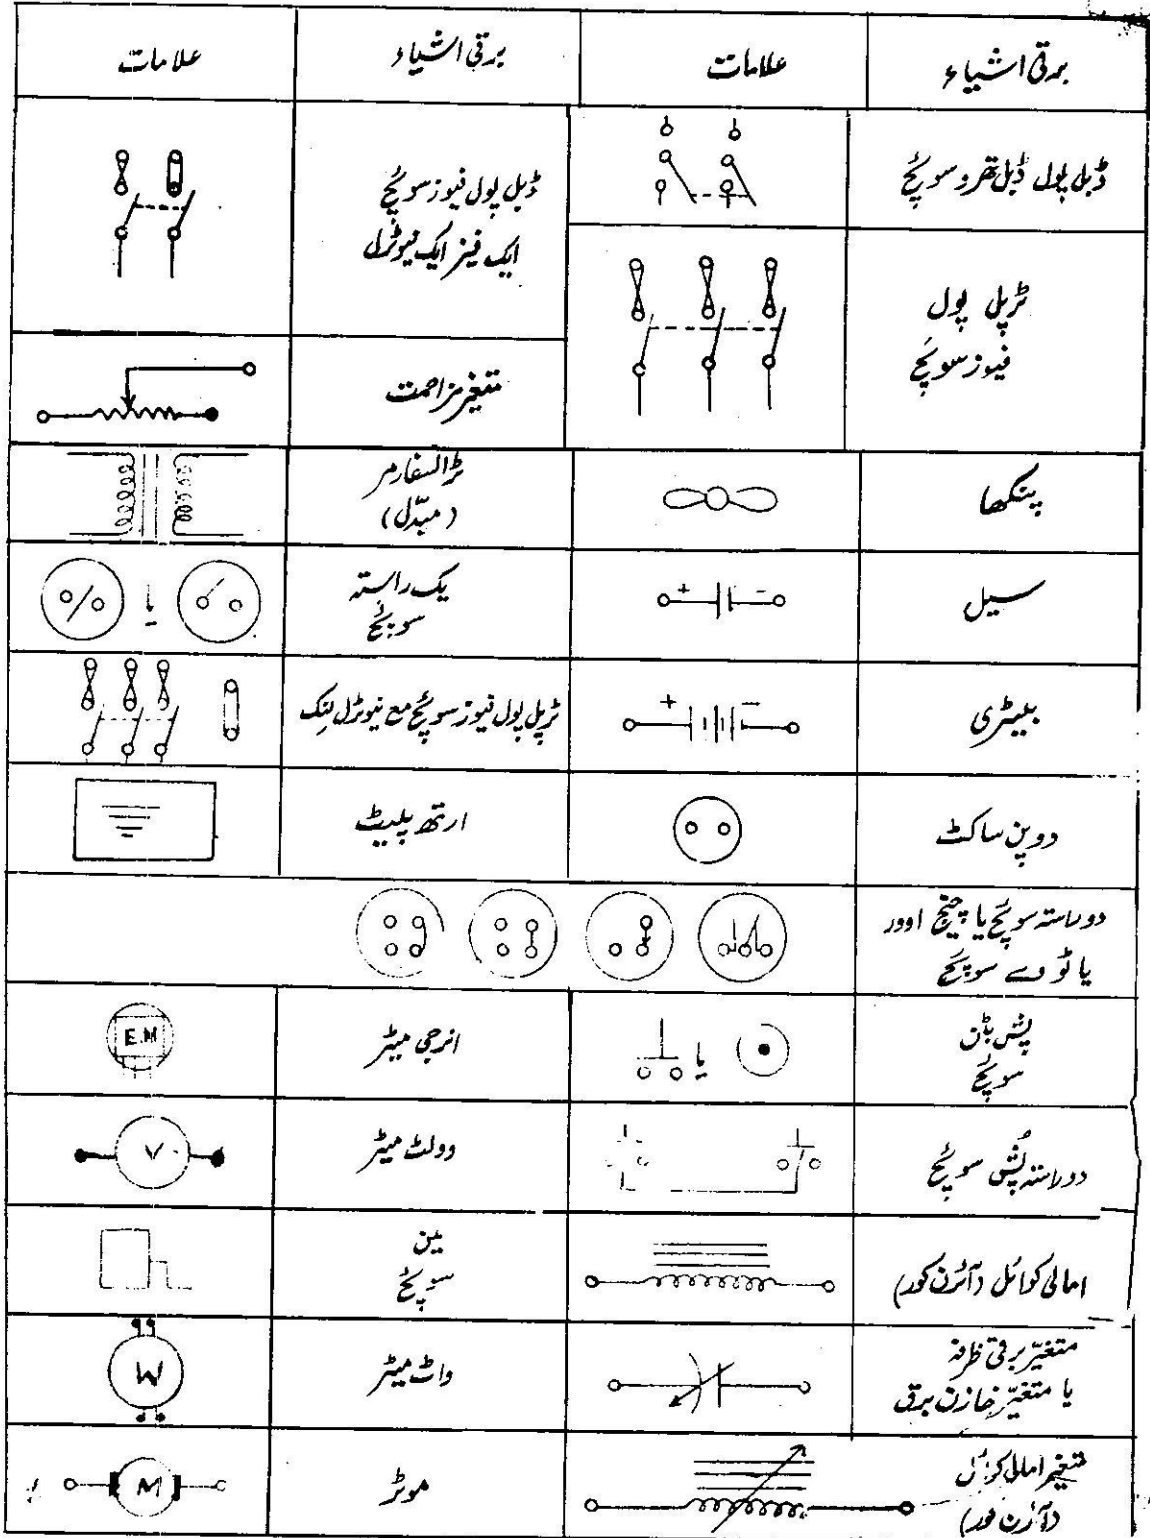 برقی اشیاء
علامات
برقی اشیاء
علامات
ڈبل پول ڈبل تھرو سوئچ
ڈبل پول فیوز سوئچ
ایک فیز ایک نیوٹرل
ٹرپل پول
فیوز سوئچ
متغیر مزاحمت
پنکھا
ٹرانسفارمر
(مبدّل)
سیل
+ -
یک راستہ
سوئچ
یا
بیٹری
+ -
ٹرپل پول فیوز سوئچ مع نیوٹرل لنک
دو پن ساکٹ
ارتھ پلیٹ
دو راستہ سوئچ یا چینج اوور
یا ٹو وے سوئچ
پش بٹن
سوئچ
یا
انرجی میٹر
E.M
دو راستہ پُش سوئچ
وولٹ میٹر
V
امالی کوائل (آئرن کور)
مین
سوئچ
متغیّر برقی ظرفہ
یا متغیّر خازن برق
واٹ میٹر
W
متغیر امالی کوائل
(آئرن کور)
موٹر
M